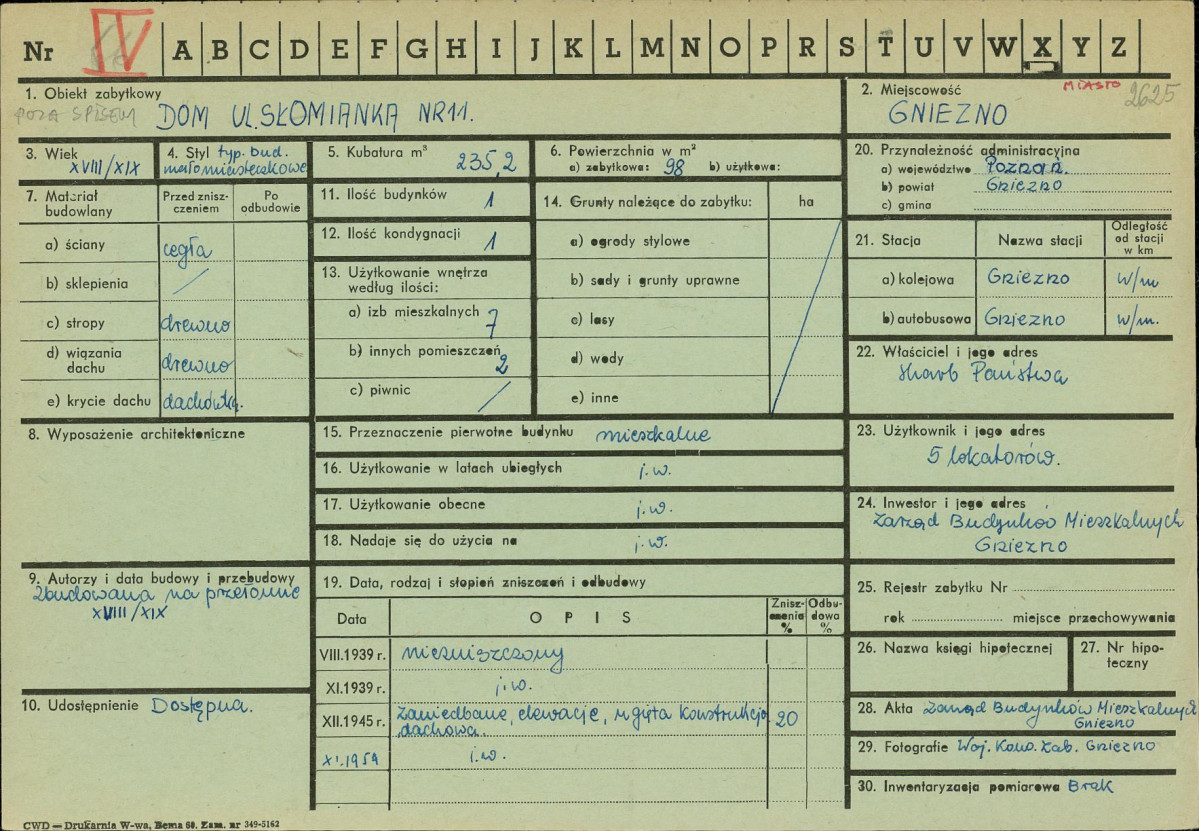 Nr IV A B C D E F G H I J K L M N O P R S T U V W X Y Z
1. Obiekt zabytkowy
POZA SPISEM DOM UL. SŁOMIANKA NR 11.
2. Miejscowość MIASTO 2625
GNIEZNO
3. Wiek
XVIII/XIX
4. Styl typ. bud.
małomiasteczkowe
5. Kubatura m³
235,2
6. Powierzchnia w m²
a) zabytkowa: 98 b) użytkowa:
20. Przynależność administracyjna
a) województwo Poznań.
b) powiat Gniezno
c) gmina
7. Materiał budowlany
Przed zniszczeniem
Po odbudowie
a) ściany cegła
b) sklepienia /
c) stropy drewno
d) wiązania dachu drewno
e) krycie dachu dachówka.
11. Ilość budynków 1
12. Ilość kondygnacji 1
13. Użytkowanie wnętrza
według ilości:
a) izb mieszkalnych 7
b) innych pomieszczeń 2
c) piwnic /
14. Grunty należące do zabytku: ha
a) ogrody stylowe
b) sady i grunty uprawne
c) lasy
d) wody
e) inne
21. Stacja Nazwa stacji Odległość od stacji w km
a) kolejowa Gniezno w/m
b) autobusowa Gniezno w/m.
22. Właściciel i jego adres
Skarb Państwa
8. Wyposażenie architektoniczne
15. Przeznaczenie pierwotne budynku mieszkalne
16. Użytkowanie w latach ubiegłych j.w.
17. Użytkowanie obecne j.w.
18. Nadaje się do użycia na j.w.
23. Użytkownik i jego adres
5 lokatorów.
24. Inwestor i jego adres
Zarząd Budynków Mieszkalnych
Gniezno
9. Autorzy i data budowy i przebudowy
Zbudowana na przełomie
XVIII/XIX
10. Udostępnienie Dostępna.
19. Data, rodzaj i stopień zniszczeń i odbudowy
Data OPIS Zniszczenia % Odbudowa %
VIII.1939 r. niezniszczony
XI.1939 r. j.w.
XII.1945 r. Zaniedbane, elewacje, ugięta konstrukcja 20
dachowa.
XI.1959 j.w.
25. Rejestr zabytku Nr
rok miejsce przechowywania
26. Nazwa księgi hipotecznej
27. Nr hipoteczny
28. Akta Zarząd Budynków Mieszkalnych
Gniezno
29. Fotografie Woj. Kons. Zab. Gniezno
30. Inwentaryzacja pomiarowa Brak
CWD — Drukarnia W-wa, Bema 60. Zam. nr 349-5162